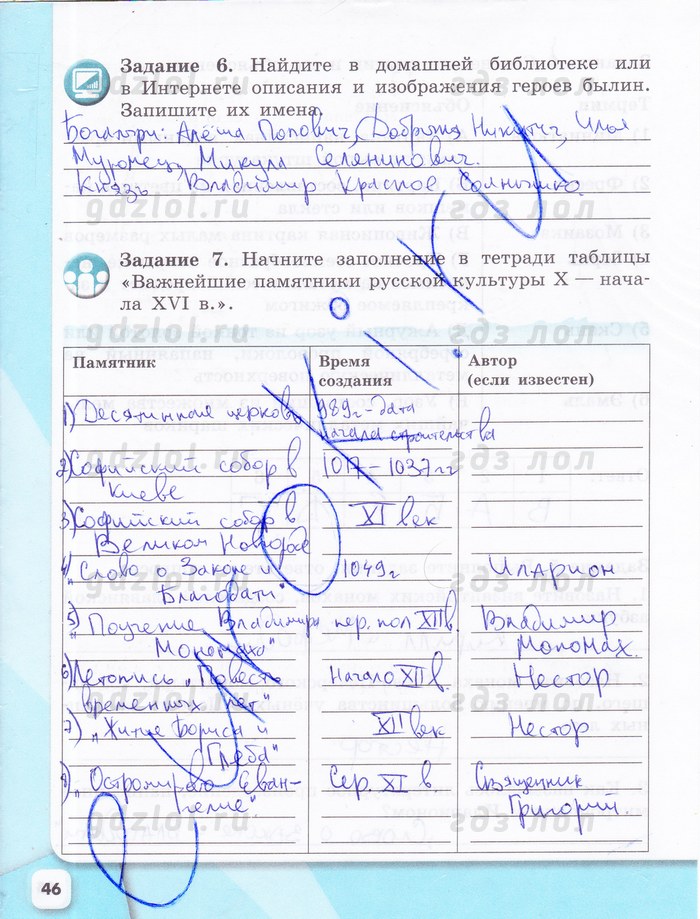 Задание 6. Найдите в домашней библиотеке или
в Интернете описания и изображения героев былин.
Запишите их имена.
Богатыри: Алёша Попович, Добрыня Никитич, Илья
Муромец, Микула Селянинович.
Князь Владимир Красное Солнышко.
gdzlol.ru гдз лол
Задание 7. Начните заполнение в тетради таблицы
«Важнейшие памятники русской культуры X — нача-
ла XVI в.».
Памятник Время создания Автор (если известен)
1) Десятинная церковь 989г - дата
начала строительства
2) Софийский собор в 1017 - 1037 гг
Киеве
3) Софийский собор в XI век
Великом Новгороде
4) „Слово о Законе и 1049г Иларион
Благодати"
5) „Поучение Владимира пер. пол XII в. Владимир
Мономаха" Мономах.
6) Летопись „Повесть Начало XII в. Нестор
временных лет"
7) „Житие Бориса и XII век Нестор
Глеба"
8) „Остромирово Еван- Сер. XI в Священник
гелие". Григорий.
46